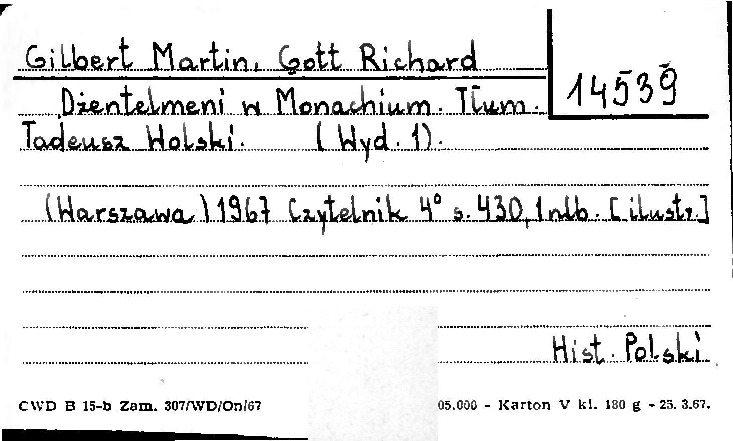 Gilbert Martin, Gott Richard
14539
Dżentelmeni w Monachium. Tłum.
Tadeusz Wolski. (Wyd. 1).
(Warszawa) 1967 Czytelnik 4° s. 430, 1 nlb. [ilustr.]
Hist. Polski
CWD B 15-b Zam. 307/WD/On/67 05.000 - Karton V kl. 180 g - 25. 3.67.